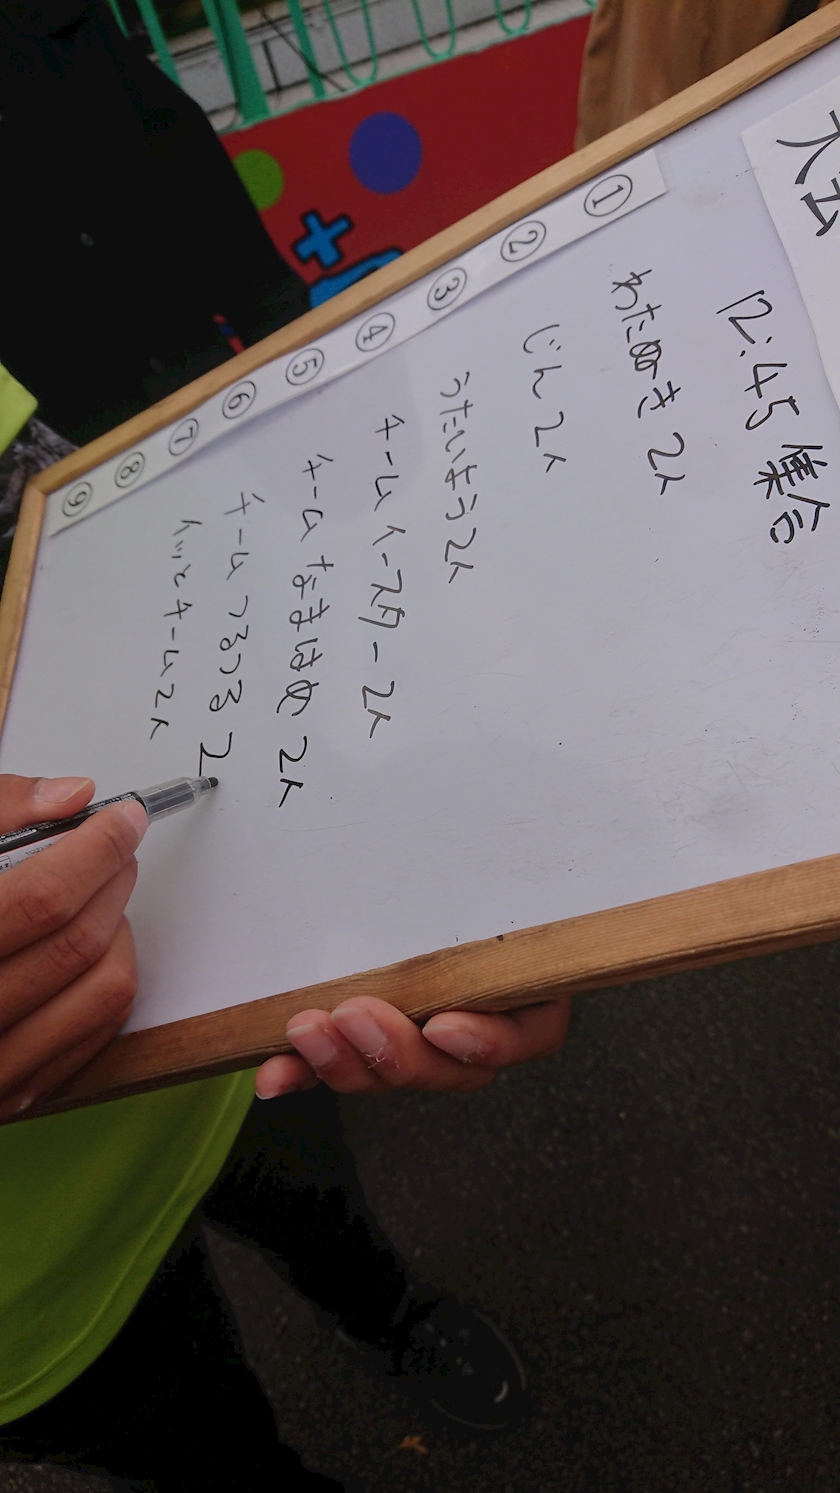 大会
12:45 集合
① わたぬき 2人
② じん 2人
③ うたいよう 2人
④ チームイースター 2人
⑤ チームなまはめ 2人
⑥ チームつるつる 2
⑦ イットチーム 2人
⑧
⑨